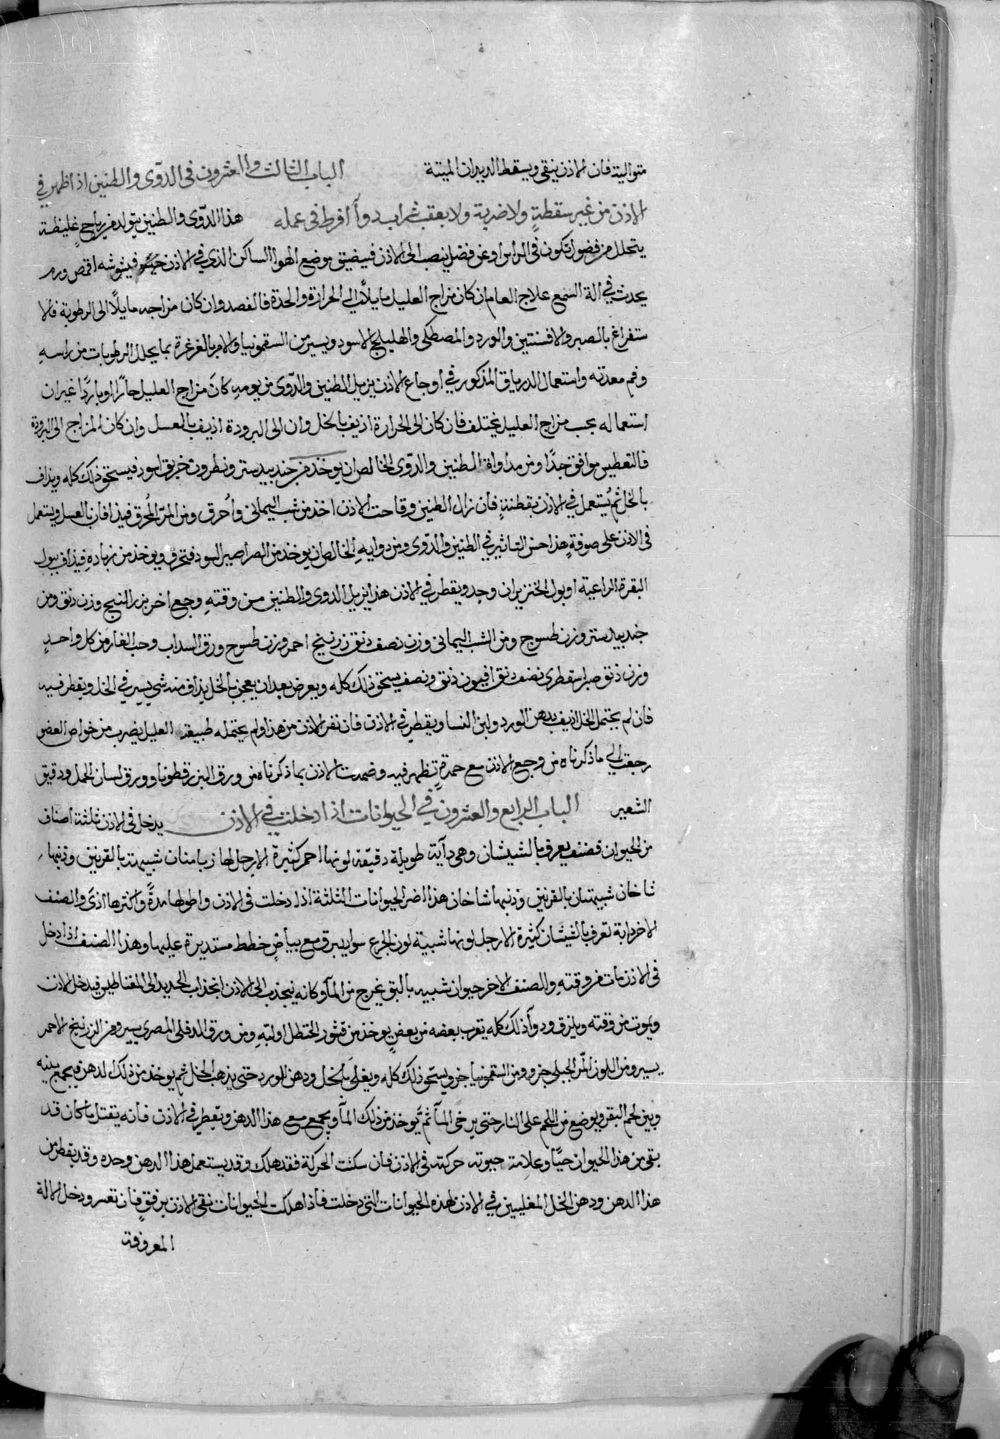 متوالية فان الاذن ينقى ويسقط الديدان الميتة الباب الثالث والعشرون فى الدوى والطنين اذا ظهر في
الاذن من غير سقطةٍ ولا ضربة ولا بعقب شراب دوآ افرط فى عمله هذا الدوى والطنين يتولد من رياح غليظة
يتحلل من فضول تكون فى الراس او عن فضل ينصب الى الاذن فيضيق موضع الهوا الساكن الذي في الاذن فيشوشه او عن ورم
يحدث في آلة السمع علاج العام ان كان مزاج العليل مايلاً الي الحرارة والحدة فالفصد وان كان مزاجه مايلًا الى الرطوبة فالا
ستفراغ بالصبر والافسنتين والورد والمصطكى والهليلج الاسود ويسير من السقمونيا والامر بالغرغرة بما يحلل الرطوبات من راسه
وفم معدته واستعمال الدرياق المذكور في اوجاع الاذن يزيل الطنين والدوى من يومه كان مزاج العليل حارًا او باردًا غير ان
استعماله بحسب مزاج العليل يختلف فان كان الى الحرارة اذيف بالخل وان الى البرودة اذيف بالعسل وان كان المزاج الى البرودة
فالتعطيس موافق جدًا ومن مداواة الطنين والدوى الخالص ان يوخذ من جندبيدستر ونطرون وخربق اسود فيسحق ذلك كله ويذاف
بالخل ثم يُستعمل في الاذن بقطنةٍ فان زال الطنين وقاحت الاذن اخذ من شب اليمانى وأحرق ومن المرّ المحرق فيذافان بالعسل ويستعمل
فى الاذن على صوفةٍ هذا حسن التاثير في الطنين والدوى ومن دوايه الخالص ان يوخذ من الصراصير السود فتحرق ويوخذ من رماده فيذاف ببول
البقرة الراعية او بول الخنزير ان وجد ويقطر في الاذن هذا يزيل الدوى والطنين من وقتهِ وجع اخر بزر البنج وزن دنق ومن
جندبيدستر وزن طسوج ومن الشب اليمانى وزن نصف دنق زرنيخ احمر وزن طسوج ورق السداب وحب الغار من كل واحدٍ
وزن دنق صبر اسقطرى نصف دنق افيون دنق ونصف يسحق ذلك كله ويعرض بعد ان يعجن بالخل يذاف منه شي يسير في الخل ويقطر فيه
فان لم يحتمل الخل اذيف بدهن الورد ولبن النسا ويقطر في الاذن فان نفر الاذن من هذا ولم يحتمله طبيعة العليل لضرب من خواص العضو
رجعت الي ما ذكرناه من وجع الاذن مع حمرةٍ تظهر فيه وضمدت الاذن بما ذكرناه من ورق البزرقطونا وورق لسان الحمل ودقيق
الشعير الباب الرابع والعشرون في الحيوانات اذا دخلت في الاذن يدخل فى الاذن ثلثة اصناف
من الحيوان فصنف يعرف بالشبشان وهى دآبة طويلة دقيقة لونها احمر كثيرة الارجل لها زبانتان شبيهة بالقرنين وذنبها
شاخان شبيهتان بالقرنين وذنبها شاخان هذا اضر الحيوانات الثلثة اذا دخلت فى الاذن واطولها مدةً واكثرها اذى والصنف
الاخر دابة تعرف بالشبشان كثيرة الارجل لونها شبيه لون الجزع سواد يبرق مع بياض خطط مستديرة عليها وهذا الصنف اذا دخل
فى الاذن مات من وقتهِ والصنف الاخر حيوان شبيه بالبق يخرج من المآ وكانه ينجذب الى الاذن انجذاب الحديد الى المغناطيس فيدخل الاذن
ويموت من وقته ويلزق ودوآ ذلك كله يقرب بعضه من بعض يوخذ من قشور الحنظل اوقيةٍ ومن ورق الدفلى المصري يسير ومن الزرنيخ الاحمر
يسير ومن اللوز المر الجبلي جزو ومن السقمونيا جزو يسحق ذلك كله ويغلى بالخل ودهن الورد حتى يذهب الخل ثم يوخذ من ذلك الدهن فيجمع بينه
وبين لحم البقر ويوضع من اللحم على النار حتى يرخى المآ ثم يوخذ من ذلك المآ ويجمع مع هذا الدهن ويقطر في الاذن فانه يقتل ما كان قد
بقى من هذا الحيوان حيًا وعلامة حيوته حركته فى الاذن فان سكنت الحركة فقد هلك وقد يستعمل هذا الدهن وحده وقد يقطر من
هذا الدهن ودهن الخل المغليين في الاذن لهذه الحيوانات التى دخلت فاذا هلكت الحيوانات نقى الاذن برفق فان تعسر ودخل الالة
المعروفة